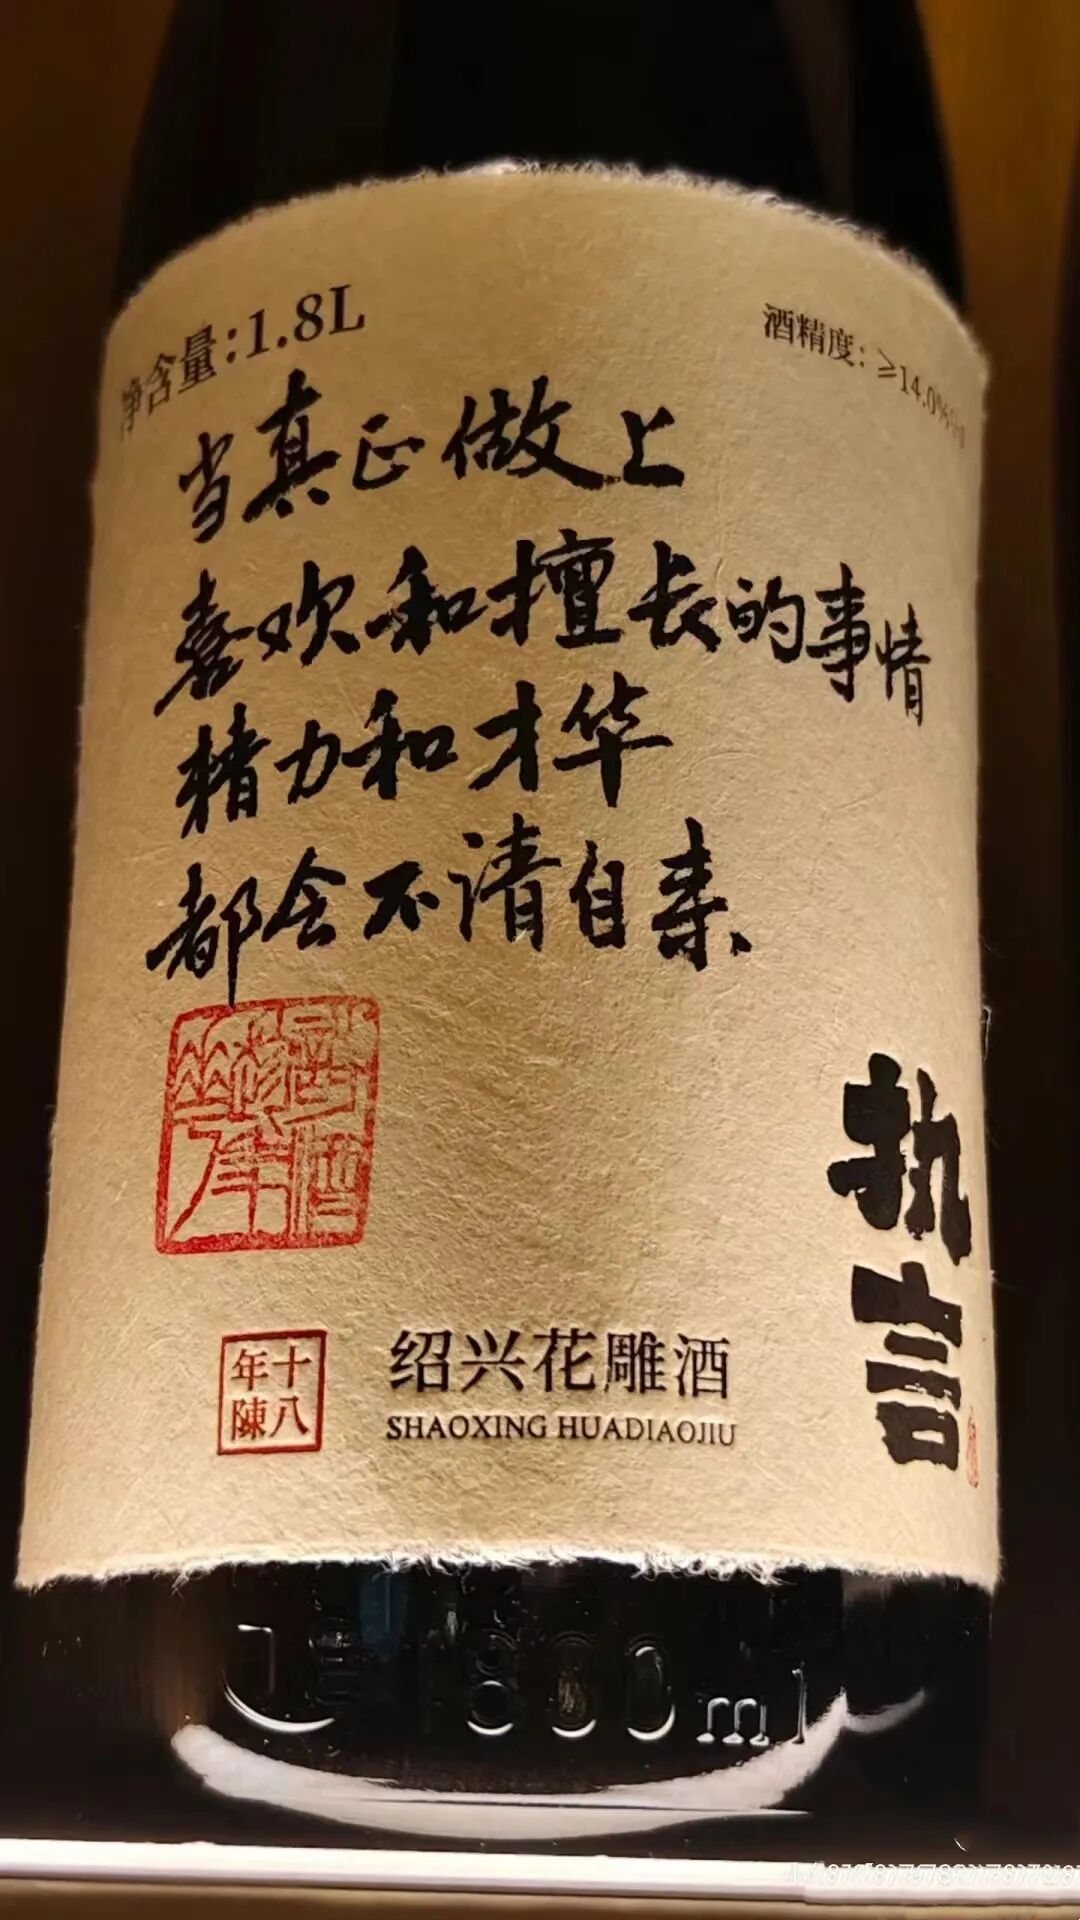 净含量:1.8L
酒精度: ≥14.0%
当真正做上
喜欢和擅长的事情
精力和才华
都会不请自来
执言
十八
年陳
绍兴花雕酒
SHAOXING HUADIAOJIU
1800ml